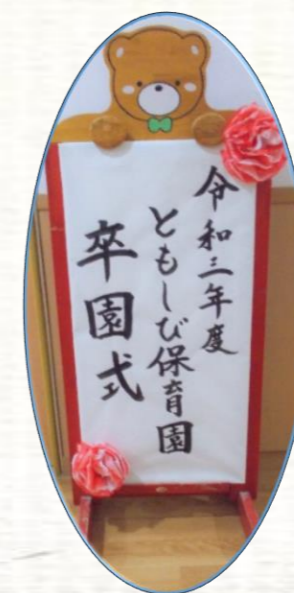 令和三年度
ともしび保育園
卒園式